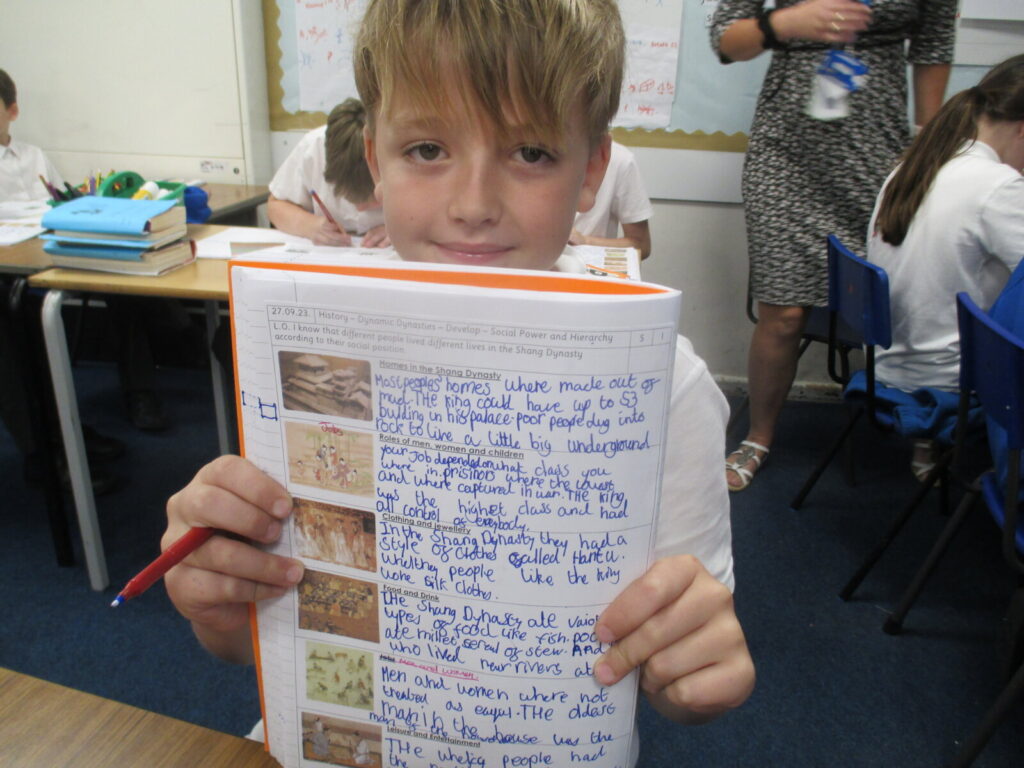 27.09.23. History – Dynamic Dynasties – Develop – Social Power and Hierarchy S I
L.O. I know that different people lived different lives in the Shang Dynasty
according to their social position.
Homes in the Shang Dynasty
Most peoples homes where made out of
mud. THe king could have up to 53
building in his palace. poor people dug into
rock to like a little big underground
Jobs
Roles of men, women and children
your Job depended on what class you
where in. prisinors where the lowest
and where captured in war. THe king
was the highest class and had
all control of everybody.
Clothing and jewellery
In the Shang Dynasty they had a
style of clothes called Hanfu.
wealthey people like the king
wore silk clothes.
Food and Drink
the Shang Dynasty ate
types of food like fish.
ate millet, of stew. And
who lived near rivers
Jobs Men and women
Men and women where not
treated as equal. THe oldest
man in the house was the
Leisure and Entertainment
THe people had